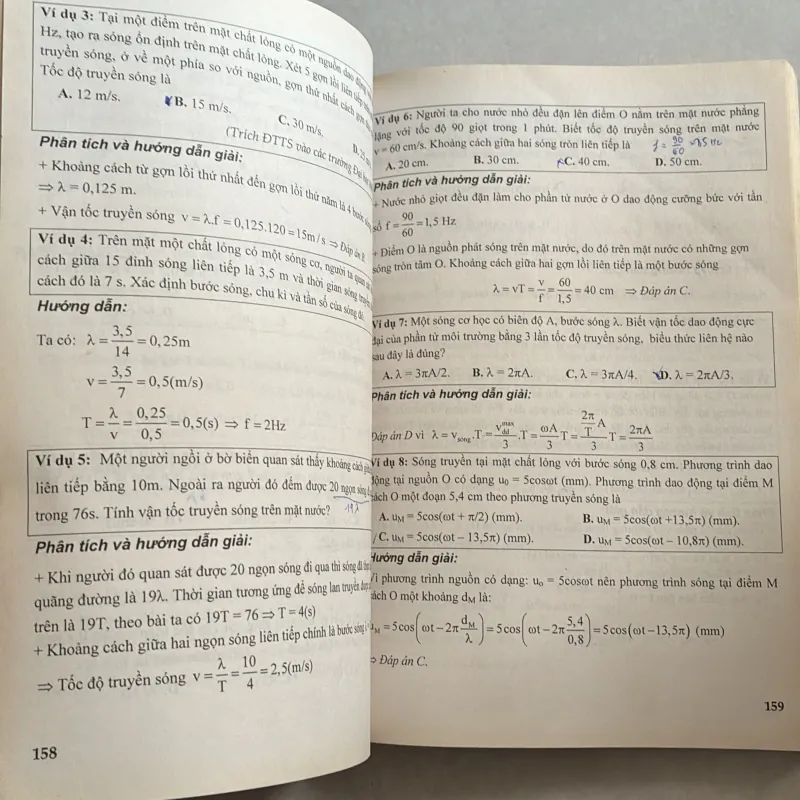 Ví dụ 3: Tại một điểm trên mặt chất lỏng có một nguồn dao động
Hz, tạo ra sóng ổn định trên mặt chất lỏng. Xét 5 gợn lồi liên tiếp
truyền sóng, ở về một phía so với nguồn, gợn thứ nhất cách gợn
Tốc độ truyền sóng là
A. 12 m/s. B. 15 m/s. C. 30 m/s. D.
(Trích ĐTTS vào các trường Đại
Phân tích và hướng dẫn giải:
+ Khoảng cách từ gợn lồi thứ nhất đến gợn lồi thứ năm là 4 bước
⇒ λ = 0,125 m.
+ Vận tốc truyền sóng v = λ.f = 0,125.120 = 15m/s ⇒ Đáp án B.
Ví dụ 4: Trên mặt một chất lỏng có một sóng cơ, người ta quan
cách giữa 15 đỉnh sóng liên tiếp là 3,5 m và thời gian sóng truyền
cách đó là 7 s. Xác định bước sóng, chu kì và tần số của sóng đó.
Hướng dẫn:
Ta có: λ = 3,5/14 = 0,25m
v = 3,5/7 = 0,5(m/s)
T = λ/v = 0,25/0,5 = 0,5(s) ⇒ f = 2Hz
Ví dụ 5: Một người ngồi ở bờ biển quan sát thấy khoảng cách giữa
liên tiếp bằng 10m. Ngoài ra người đó đếm được 20 ngọn sóng
trong 76s. Tính vận tốc truyền sóng trên mặt nước?
19λ
Phân tích và hướng dẫn giải:
+ Khi người đó quan sát được 20 ngọn sóng đi qua thì sóng đã
quãng đường là 19λ. Thời gian tương ứng để sóng lan truyền được
trên là 19T, theo bài ta có 19T = 76 ⇒ T = 4(s)
+ Khoảng cách giữa hai ngọn sóng liên tiếp chính là bước sóng
⇒ Tốc độ truyền sóng v = λ/T = 10/4 = 2,5(m/s)
158
Ví dụ 6: Người ta cho nước nhỏ đều đặn lên điểm O nằm trên mặt nước phẳng
lặng với tốc độ 90 giọt trong 1 phút. Biết tốc độ truyền sóng trên mặt nước
v = 60 cm/s. Khoảng cách giữa hai sóng tròn liên tiếp là f = 90/60
A. 20 cm. B. 30 cm. C. 40 cm. D. 50 cm.
Phân tích và hướng dẫn giải:
+ Nước nhỏ giọt đều đặn làm cho phần tử nước ở O dao động cưỡng bức với tần
số f = 90/60 = 1,5 Hz
+ Điểm O là nguồn phát sóng trên mặt nước, do đó trên mặt nước có những gợn
sóng tròn tâm O. Khoảng cách giữa hai gợn lồi liên tiếp là một bước sóng
λ = vT = v/f = 60/1,5 = 40 cm ⇒ Đáp án C.
Ví dụ 7: Một sóng cơ học có biên độ A, bước sóng λ. Biết vận tốc dao động cực
đại của phần tử môi trường bằng 3 lần tốc độ truyền sóng, biểu thức liên hệ nào
sau đây là đúng?
A. λ = 3πA/2. B. λ = 2πA. C. λ = 3πA/4. D. λ = 2πA/3.
Phân tích và hướng dẫn giải:
Đáp án D vì λ = v_sóng.T = v_dđ^max/3 .T = ωA/3 T = (2π/T A)/3 T = 2πA/3
Ví dụ 8: Sóng truyền tại mặt chất lỏng với bước sóng 0,8 cm. Phương trình dao
động tại nguồn O có dạng u₀ = 5cosωt (mm). Phương trình dao động tại điểm M
cách O một đoạn 5,4 cm theo phương truyền sóng là
A. u_M = 5cos(ωt + π/2) (mm). B. u_M = 5cos(ωt +13,5π) (mm).
C. u_M = 5cos(ωt – 13,5π) (mm). D. u_M = 5cos(ωt – 10,8π) (mm).
Hướng dẫn giải:
Vì phương trình nguồn có dạng: u₀ = 5cosωt nên phương trình sóng tại điểm M
cách O một khoảng d_M là:
u_M = 5cos(ωt − 2π d_M/λ) = 5cos(ωt − 2π 5,4/0,8) = 5cos(ωt − 13,5π) (mm)
⇒ Đáp án C.
159